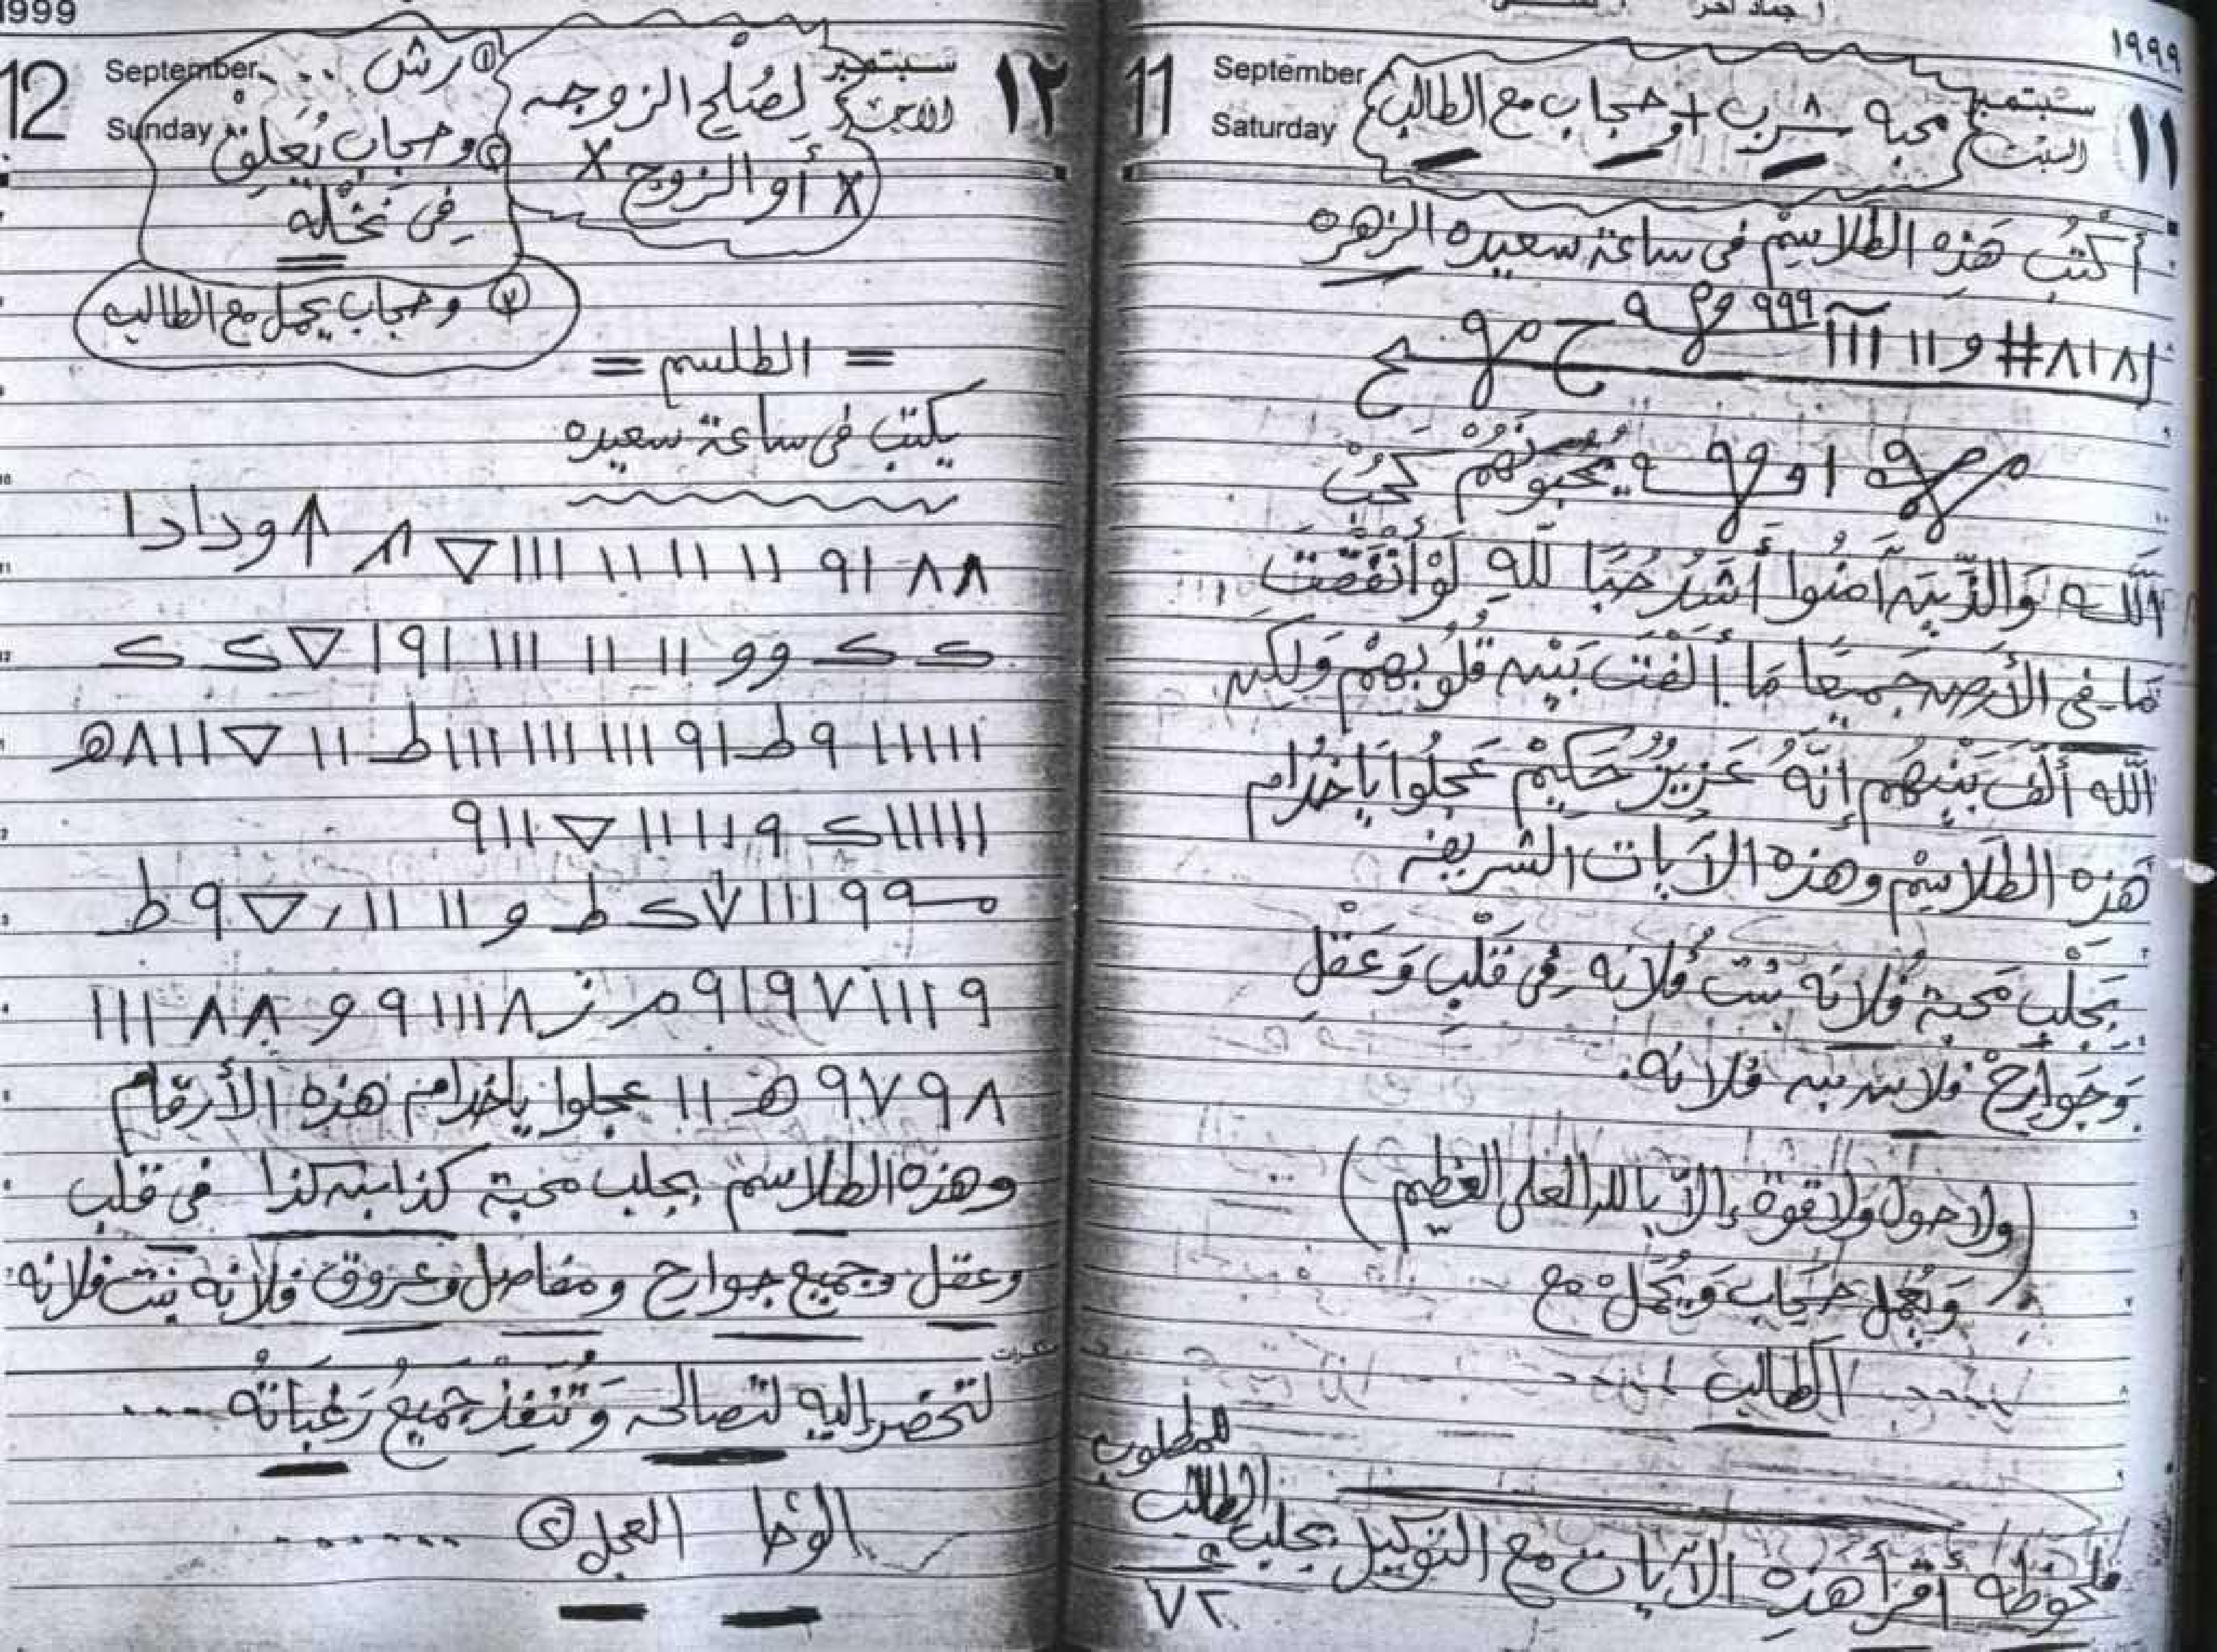 ١٩٩٩
11 September Saturday سبتمبر السبت ١١
محبه شرب + وحجاب مع الطالب
أكتب هَذِه الطلاسِم فى ساعة سعيده الزهره
٨١٨# و١١ ١١١ ٩٩٩
يُحبُونَهُم كَحُبْ
اللَّه وَالذِّينَ آمنُوا أَشَدُ حُبَاً للَّهِ لَوْ أنفَقتَ
مَا فى الأَرضِ جَميعًا مَا أَلفَتَ بَيْنِ قُلُوبُهُمْ وَلَكن
اللَّه أَلَّفَ بَيْنِهُم إنَّهُ عَزيزُ حَكيمْ عَجلُوا يَا خدُام
هَذه الطَلاسِم وهَذه الآيات الشريفه
بِجَلْبِ مَحبة فُلانه بنت فُلانه فِى قَلْبِ وَعَقلِ
وَجَوارِحْ فلان بن فلانه.
(ولا حول ولا قوة إلا بالله العلى العظيم)
وَيُعْمل حجَاب وَيُحْمَلْ مع
الطالب
ملحوظه أقرأ هَذِه الآيات مع التوكيل بجلب الطالب للمطلوب
٧٢
1999
12 September Sunday سبتمبر الاحد ١٢
لِصُلْحِ الزوجه
X أَو الزوج X
① رش ...
② وحجاب يُعَلق
فِى نَخْله
وحجاب يحمل مع الطالب
= الطلسم =
يكتب فى ساعة سعيده
٨٨ ١٩ ١١ ١١ ١١ ١١١ ▽ ↑ ودادا
ك ك وو ١١ ١١ ١١١ ١٩١ ▽ ك ك
١١١١١ ٩ ط ١٩ ١١١ ١١١ ١١١ ط ١١ ▽ ١١٨ه
١١١١١ ك ٩ ١١١١١ ▽ ١١٩
٩٩ ١١١ ك ط و ١١ ١١ ▽ ٩ ط
٩ ١١١١ ٧ ٩١٩ م ز ٨١١١ ٩ و ٨٨ ١١١
٨ ٩ ٧ ٩ هـ ١١ عجلوا ياخدام هذه الأرقام
وهذه الطلاسم بجلب محبة كذا بن كذا فى قلب
وعقل وجميع جوارح ومفاصل وعروق فلانه بنت فلانه
لتحضر إليه لتصالحه وَتُنَفِذ جَميعُ رَغبَاتهُ ...
الوحا العجل ② .......